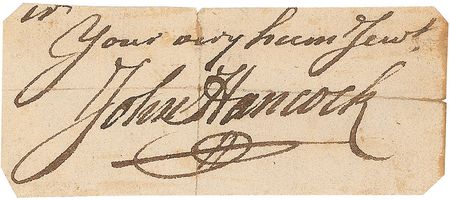 Your very hum Servt.
John Hancock